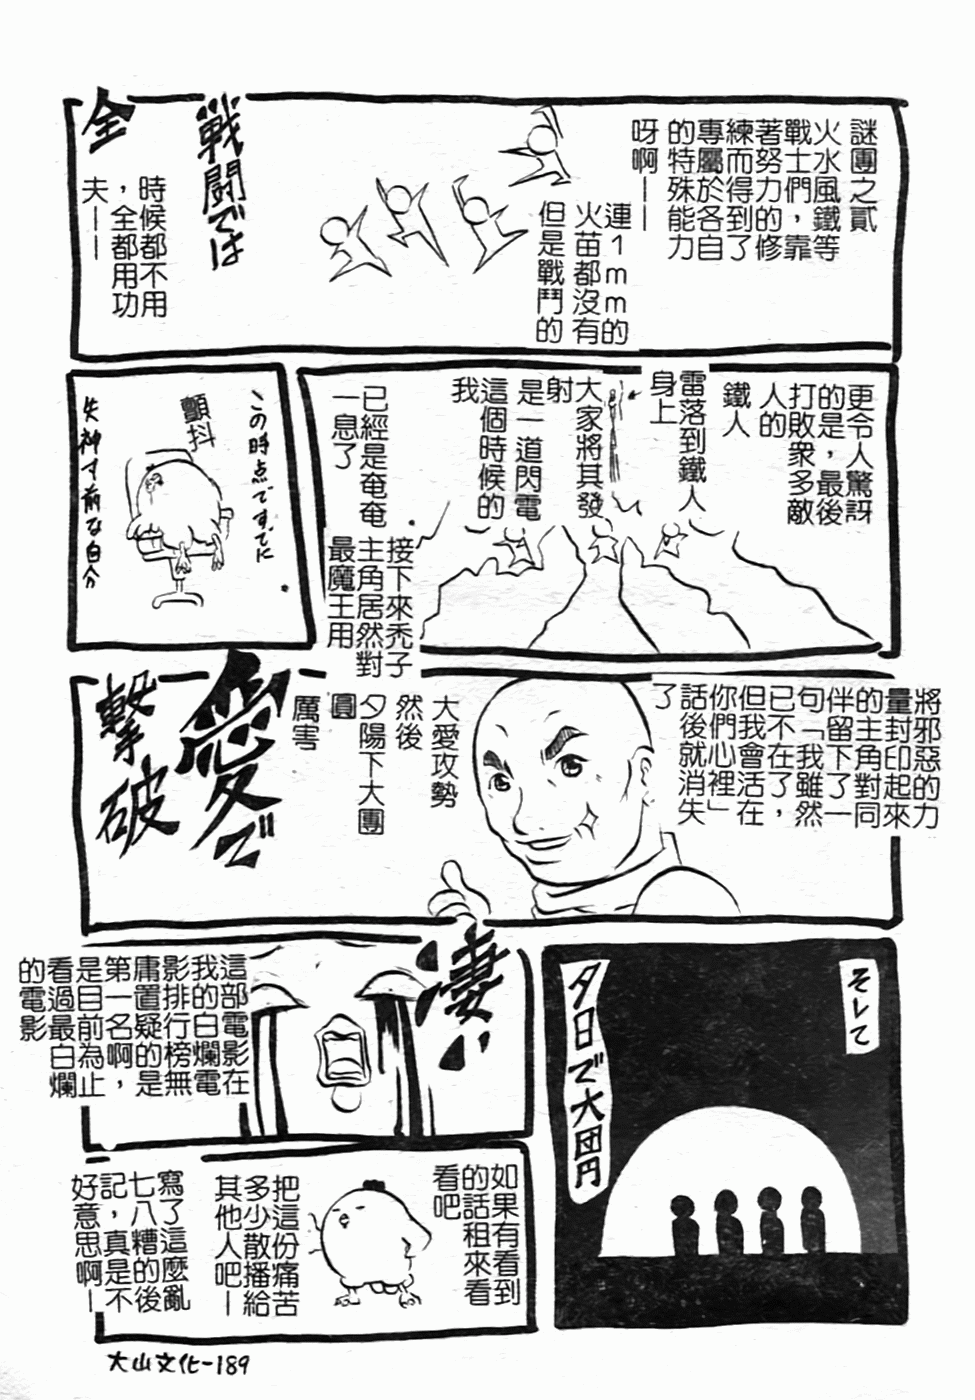 謎團之貳
火水風鐵等
戰士們，靠
著努力的修
練而得到了
專屬於各自
的特殊能力
呀啊——
連1mm的
火苗都沒有
但是戰鬥的
戦闘では
全
時候都不用
，全都用功
夫——
更令人驚訝
的是，最後
打敗眾多敵
人的
鐵人
雷落到鐵人
身上
大家將其發
射
是一道閃電
這個時候的
我
已經是奄奄
一息了
この時点ですでに
顫抖
失神寸前な自分
接下來禿子
主角居然對
最魔王用
大愛攻勢
然後
夕陽下大團
圓
厲害
愛で
撃破
將邪惡的力
量封印起來
的主角對同
伴留下了一
句「我雖然
已不在了，
但我會活在
你們心裡」
話後就消失
了
そして
夕日で大団円
凄い
這部電影在
我的白爛電
影排行榜無
庸置疑的是
第一名啊，
是目前為止
看過最白爛
的電影
如果有看到
的話租來看
看吧
把這份痛苦
多少散播給
其他人吧—
寫了這麼亂
七八糟的後
記，真是不
好意思啊—
大山文化-189